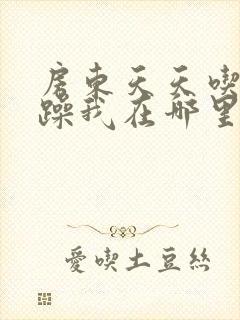 房東天天喫
躁我在哪里
愛喫土豆絲